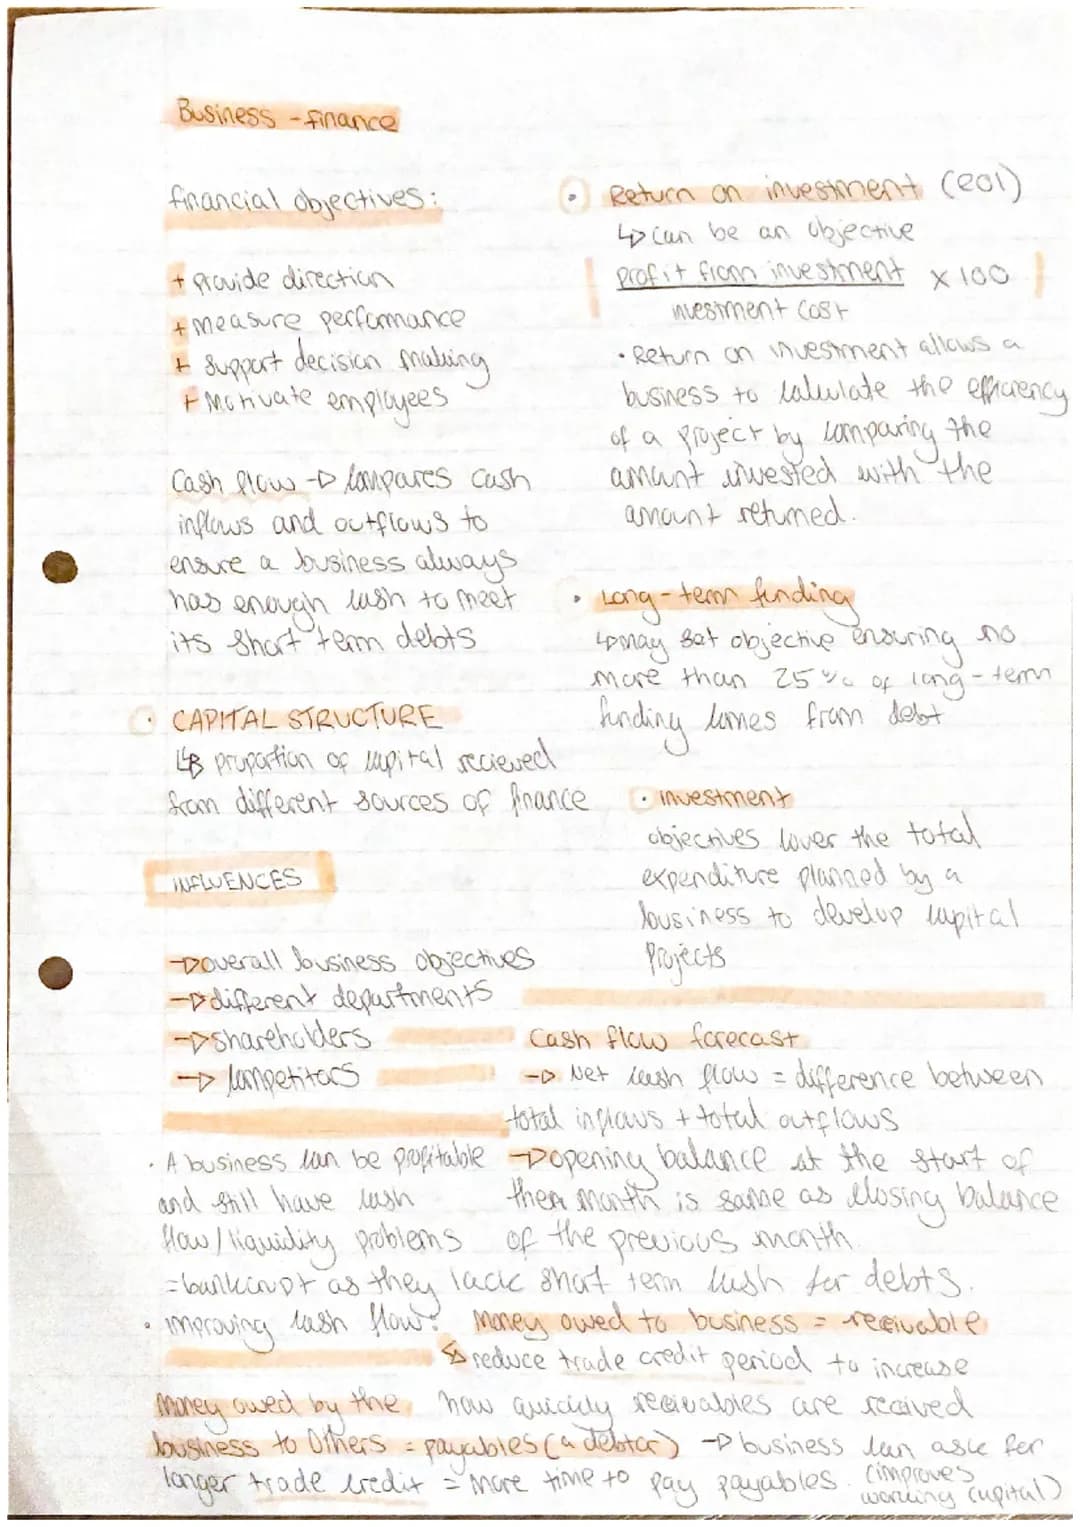 Business - finance
financial objectives:
+ provide direction
+ measure performance
+ support decision making
+ Motivate employees
Cash flow → compares cash
inflows and outflows to
ensure a business always
has enough cash to meet
its short term debts
• CAPITAL STRUCTURE
↳ proportion of capital recieved
from different sources of finance
INFLUENCES
→ overall business objectives
→ different departments
→ shareholders
→ competitors
• Return on investment (ROI)
↳ can be an objective
profit from investment × 100
investment cost
• Return on investment allows a
business to calculate the efficiency
of a project by comparing the
amount invested with the
amount returned.
• Long-term funding
↳ may set objective ensuring no
more than 25% of long-term
funding comes from debt
• investment
objectives cover the total
expenditure planned by a
business to develop capital
projects
Cash flow forecast
→ Net cash flow = difference between
total inflows + total outflows
→ opening balance at the start of
the month is same as closing balance
of the previous month
• A business can be profitable
and still have cash
flow/liquidity problems
= bankrupt as they lack short term cash for debts.
• improving cash flow: Money owed to business = receivable
↳ reduce trade credit period to increase
how quickly receivables are received
Money owed by the
business to others = payables (a debtor) → business can ask for
longer trade credit = More time to pay payables. (improves
working capital)